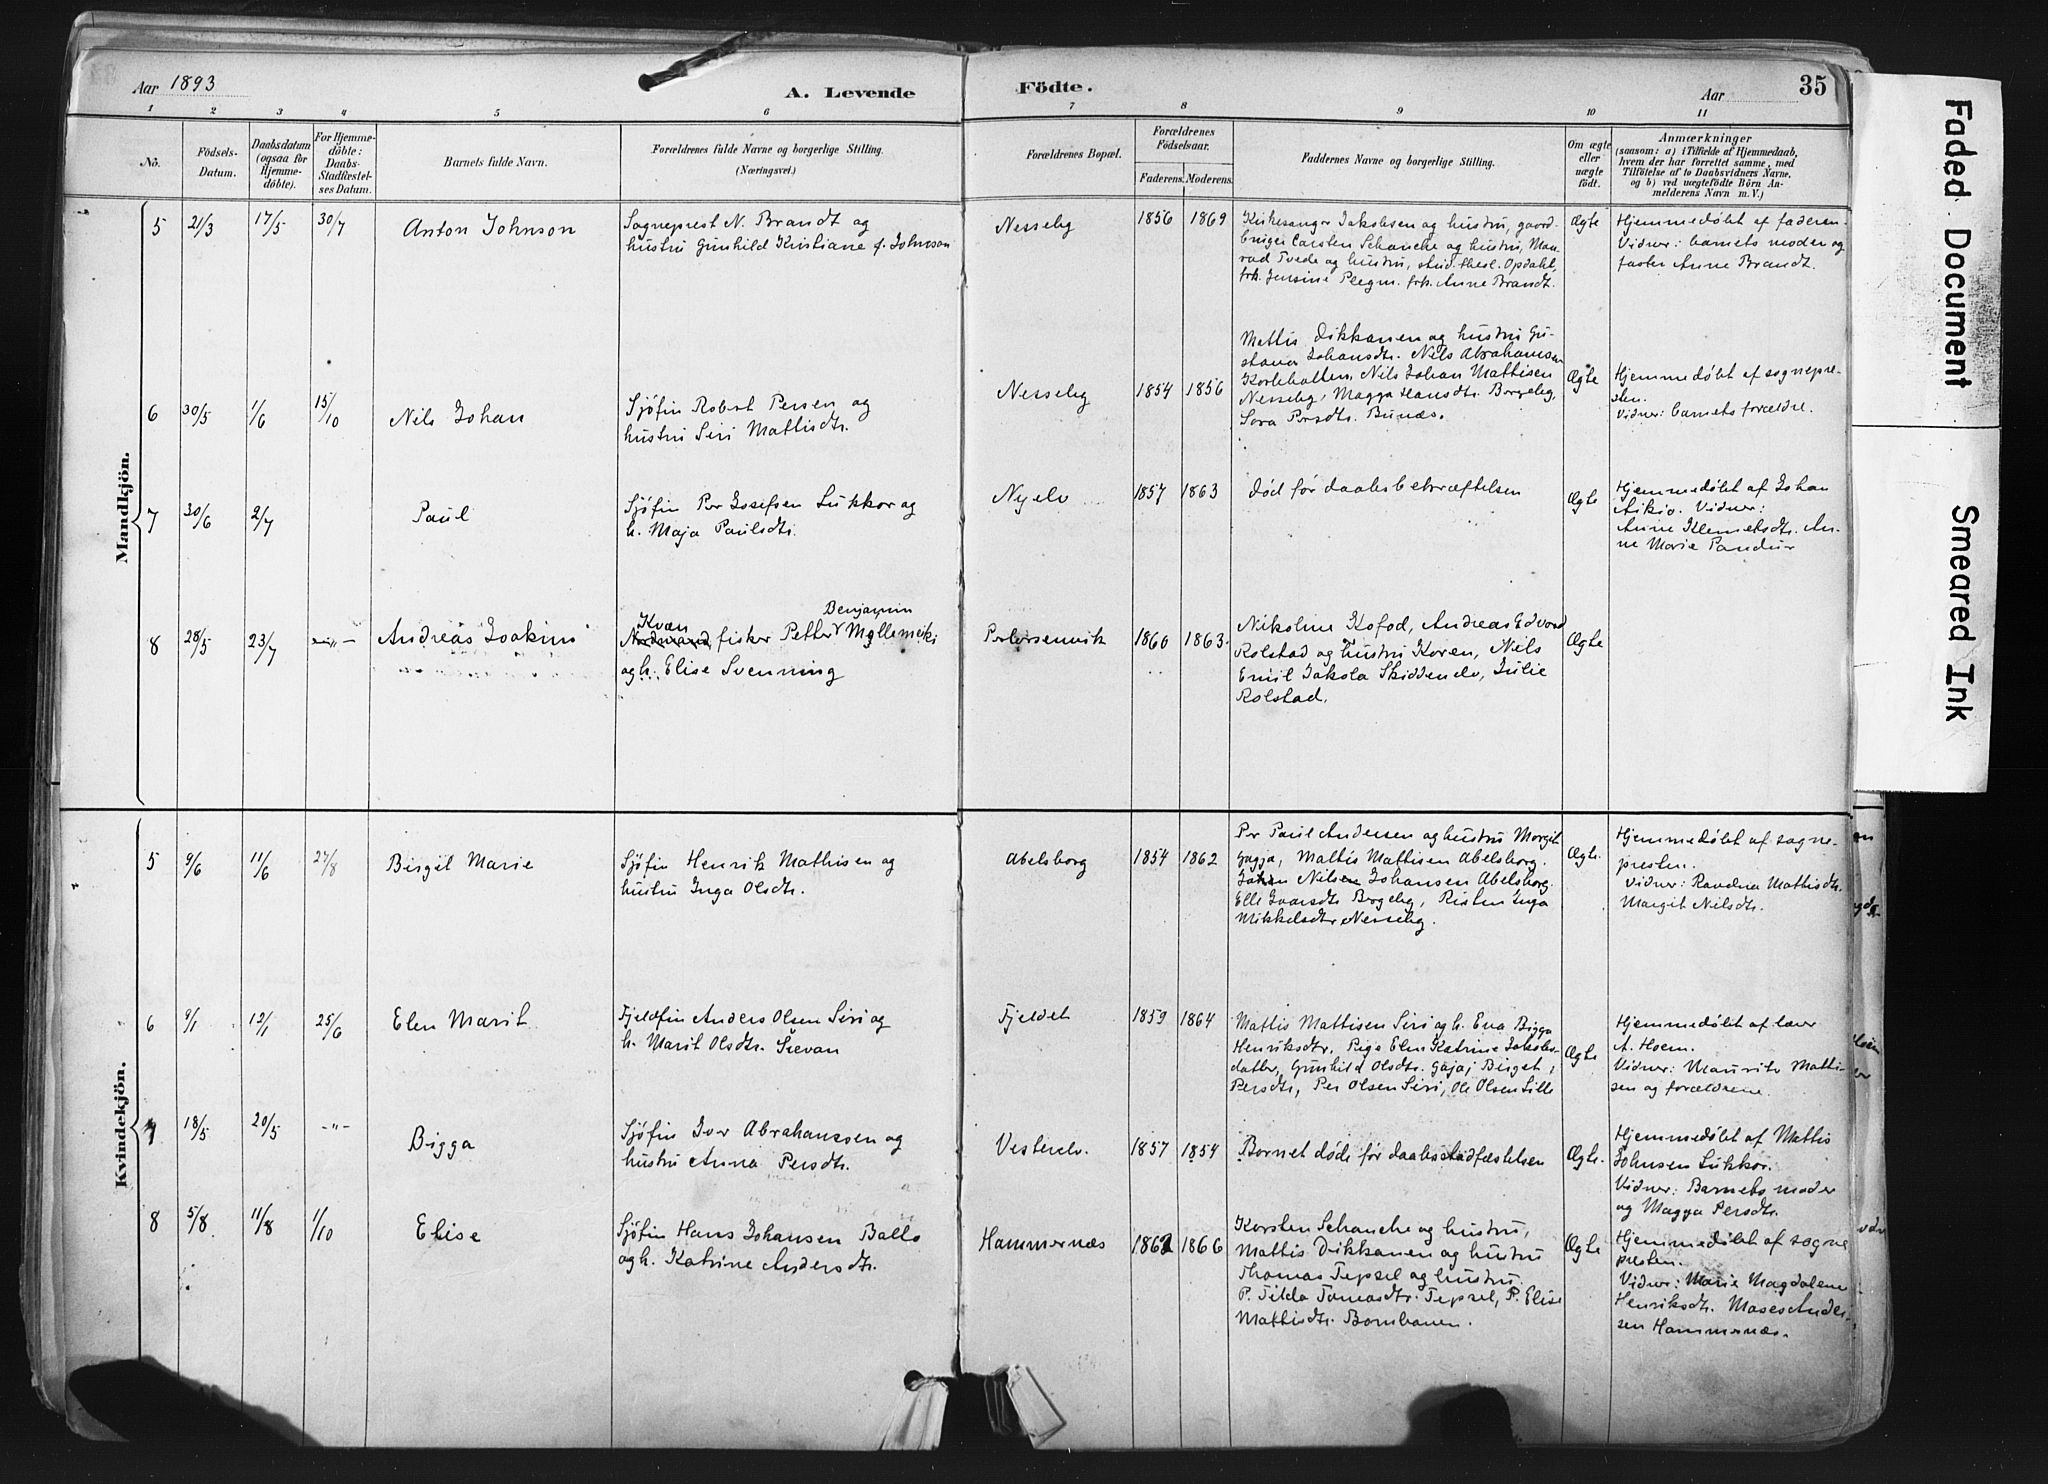 Aar 1893
A. Levende
Födte.
Aar
35
1 2 3 4 5 6 7 8 9 10 11
No.
Födsels-
Datum.
Daabsdatum
(ogsaa for
Hjemme-
döbte).
For Hjemme-
döbte:
Daabs-
Stadfæstel-
ses Datum.
Barnets fulde Navn.
Forældrenes fulde Navne og borgerlige Stilling.
(Næringsvei.)
Forældrenes Bopæl.
Forældrenes
Födselsaar.
Faderens. Moderens.
Faddernes Navne og borgerlige Stilling.
Om ægte
eller
uægte
födt.
Anmærkninger
(saasom: a) i Tilfælde af Hjemmedaab,
hvem der har forrettet samme, med
Tilföielse af to Daabsvidners Navne,
og b) ved uægtefödte Börn An-
melderens Navn m. V.)
Mandkjön.
5 21/3 17/5 30/7 Anton Johnson
Sogneprest N. Brandt og
hustru Gunhild Kristiane f. Johnson
Nesseby 1856 1869
Kirkesanger Jakobsen og hustru, gaard-
bruger Carsten Schanche og hustru, Mon-
rad Tvede og hustru, stud. theol. Opdahl,
frk. Jensine Plegm. frk. Anne Brandt.
Ægte
Hjemmedøbt af faderen
Vidner: barnets moder og
faster Anne Brandt.
6 30/5 1/6 15/10 Nils Johan
Sjøfin Robert Persen og
hustru Siri Mathisdtr.
Nesseby 1854 1856
Mattis Dikkanen og hustru Gu-
stava Johansdtr. Nils Abrahamsen
Nils Johan Mathisen
Nesseby, Magga Hansdtr. Borgeby,
Sara Persdtr. Bunæs.
Ægte
Hjemmedøbt af sognepre-
sten.
Vidner: barnets forældre.
7 30/6 2/7 Paul
Sjøfin Per Josefsen Lukkar og
h. Maja Paulsdtr.
Nyelv 1857 1863
død før daabsbekræftelsen
Ægte
Hjemmedøbt af Johan
Aikio. Vidner:
Anne Klemetsdtr. An-
ne Marie Pandur
8 28/5 23/7 -"- Andreas Joakim
Benjamin
Kvæn
Nordmand, fisker Petter Mellemviki
og h. Elise Svenning
Pedersenvik 1860 1863.
Nikoline Kofod, Andreas Edvard
Rolstad og hustru Karen, Nils
Emil Jakola Skiddenelv, Julie
Rolstad.
Ægte
Kvindekjön.
5 9/6 11/6 27/8 Birgit Marie
Sjøfin Henrik Mathisen og
hustru Inga Olsdtr.
Abelsborg 1854 1862
Per Paul Andersen og hustru Margit
Gagja, Mattis Mattisen Abelsborg.
Johan Nilsen Johansen Abelsborg.
Elli Ivarsdtr Borgeby, Risten Inga
Mikkelsdtr Nesseby.
Ægte.
Hjemmedøbt af sogne-
presten.
Vidner: Ravdna Mathisdtr.
Margit Nilsdtr.
6 9/1 12/1 25/6 Elen Marit
Fjeldfin Anders Olsen Siri og
h. Marit Olsdtr.
Fjeldet 1859 1864
Mattis Mattisen Siri og h. Eva Bigga
Henriksdtr, Pige Elen Katrine Jakobs-
datter, Gunhild Olsdtr. Gaja, Birget
Persdtr, Per Olsen Siri, Ole Olsen Lille
Ægte
Hjemmedøbt af lærer
A. Hoem.
Vidner: Mauritz Matti-
sen og forældrene.
7 18/5 20/5 -"- Bigga
Sjøfin Iver Abrahamsen og
hustru Anna Persdtr.
Vesterelv. 1857 1854
Barnet døde før daabsstadfæstelsen
Ægte.
Hjemmedøbt af Mattis
Johnsen Lukkar.
Vidner: Barnets moder
og Magga Persdtr.
8 5/8 11/8 1/10 Elise
Sjøfin Hans Johansen Ballo
og h. Katrine Andersdtr.
Hammernæs 1862 1866
Karsten Schanche og hustru,
Mattis Dikkanen og hustru
Thomas Tepsel og hustru
P. Tilda Tomasdtr. Tepsel, P. Elise
Mathisdtr. Bombanen.
Ægte
Hjemmedøbt af sogne
presten.
Vidner: Marie Magdalene
Henriksdtr. Moses Ander-
sen Hammernæs.
Faded Document
Smeared Ink